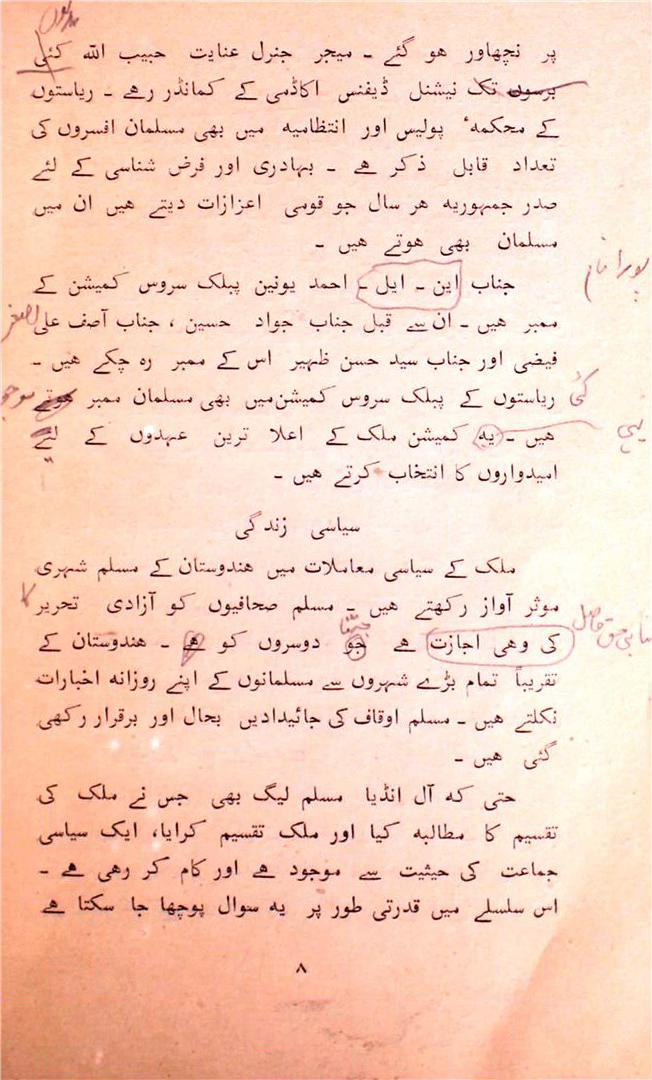 پر نچھاور ھو گئے ۔ میجر جنرل عنایت حبیب اللہ کئی
برسوں تک نیشنل ڈیفنس اکاڈمی کے کمانڈر رھے ۔ ریاستوں
کے محکمہٴ پولیس اور انتظامیہ میں بھی مسلمان افسروں کی
تعداد قابل ذکر ھے ۔ بہادری اور فرض شناسی کے لئے
صدر جمہوریہ ھر سال جو قومی اعزازات دیتے ھیں ان میں
مسلمان بھی ھوتے ھیں ۔
پورا نام
جناب این ۔ ایل ۔ احمد یونین پبلک سروس کمیشن کے
ممبر ھیں ۔ ان سے قبل جناب جواد حسین ، جناب آصف علی اصغر
فیضی اور جناب سید حسن ظہیر اس کے ممبر رہ چکے ھیں ۔
کئی ریاستوں کے پبلک سروس کمیشن میں بھی مسلمان ممبر ھوتے
ھیں ۔ یہ کمیشن ملک کے اعلا ترین عہدوں کے لئے
یہی
امیدواروں کا انتخاب کرتے ھیں ۔
سیاسی زندگی
ملک کے سیاسی معاملات میں ھندوستان کے مسلم شہری
موثر آواز رکھتے ھیں ۔ مسلم صحافیوں کو آزادی تحریر کا
جتنا
کی وھی اجازت ھے جو دوسروں کو ھے ۔ ھندوستان کے
تقریباً تمام بڑے شہروں سے مسلمانوں کے اپنے روزانہ اخبارات
نکلتے ھیں ۔ مسلم اوقاف کی جائیدادیں بحال اور برقرار رکھی
گئی ھیں ۔
حتی کہ آل انڈیا مسلم لیگ بھی جس نے ملک کی
تقسیم کا مطالبہ کیا اور ملک تقسیم کرایا، ایک سیاسی
جماعت کی حیثیت سے موجود ھے اور کام کر رھی ھے ۔
اس سلسلے میں قدرتی طور پر یہ سوال پوچھا جا سکتا ھے
۸